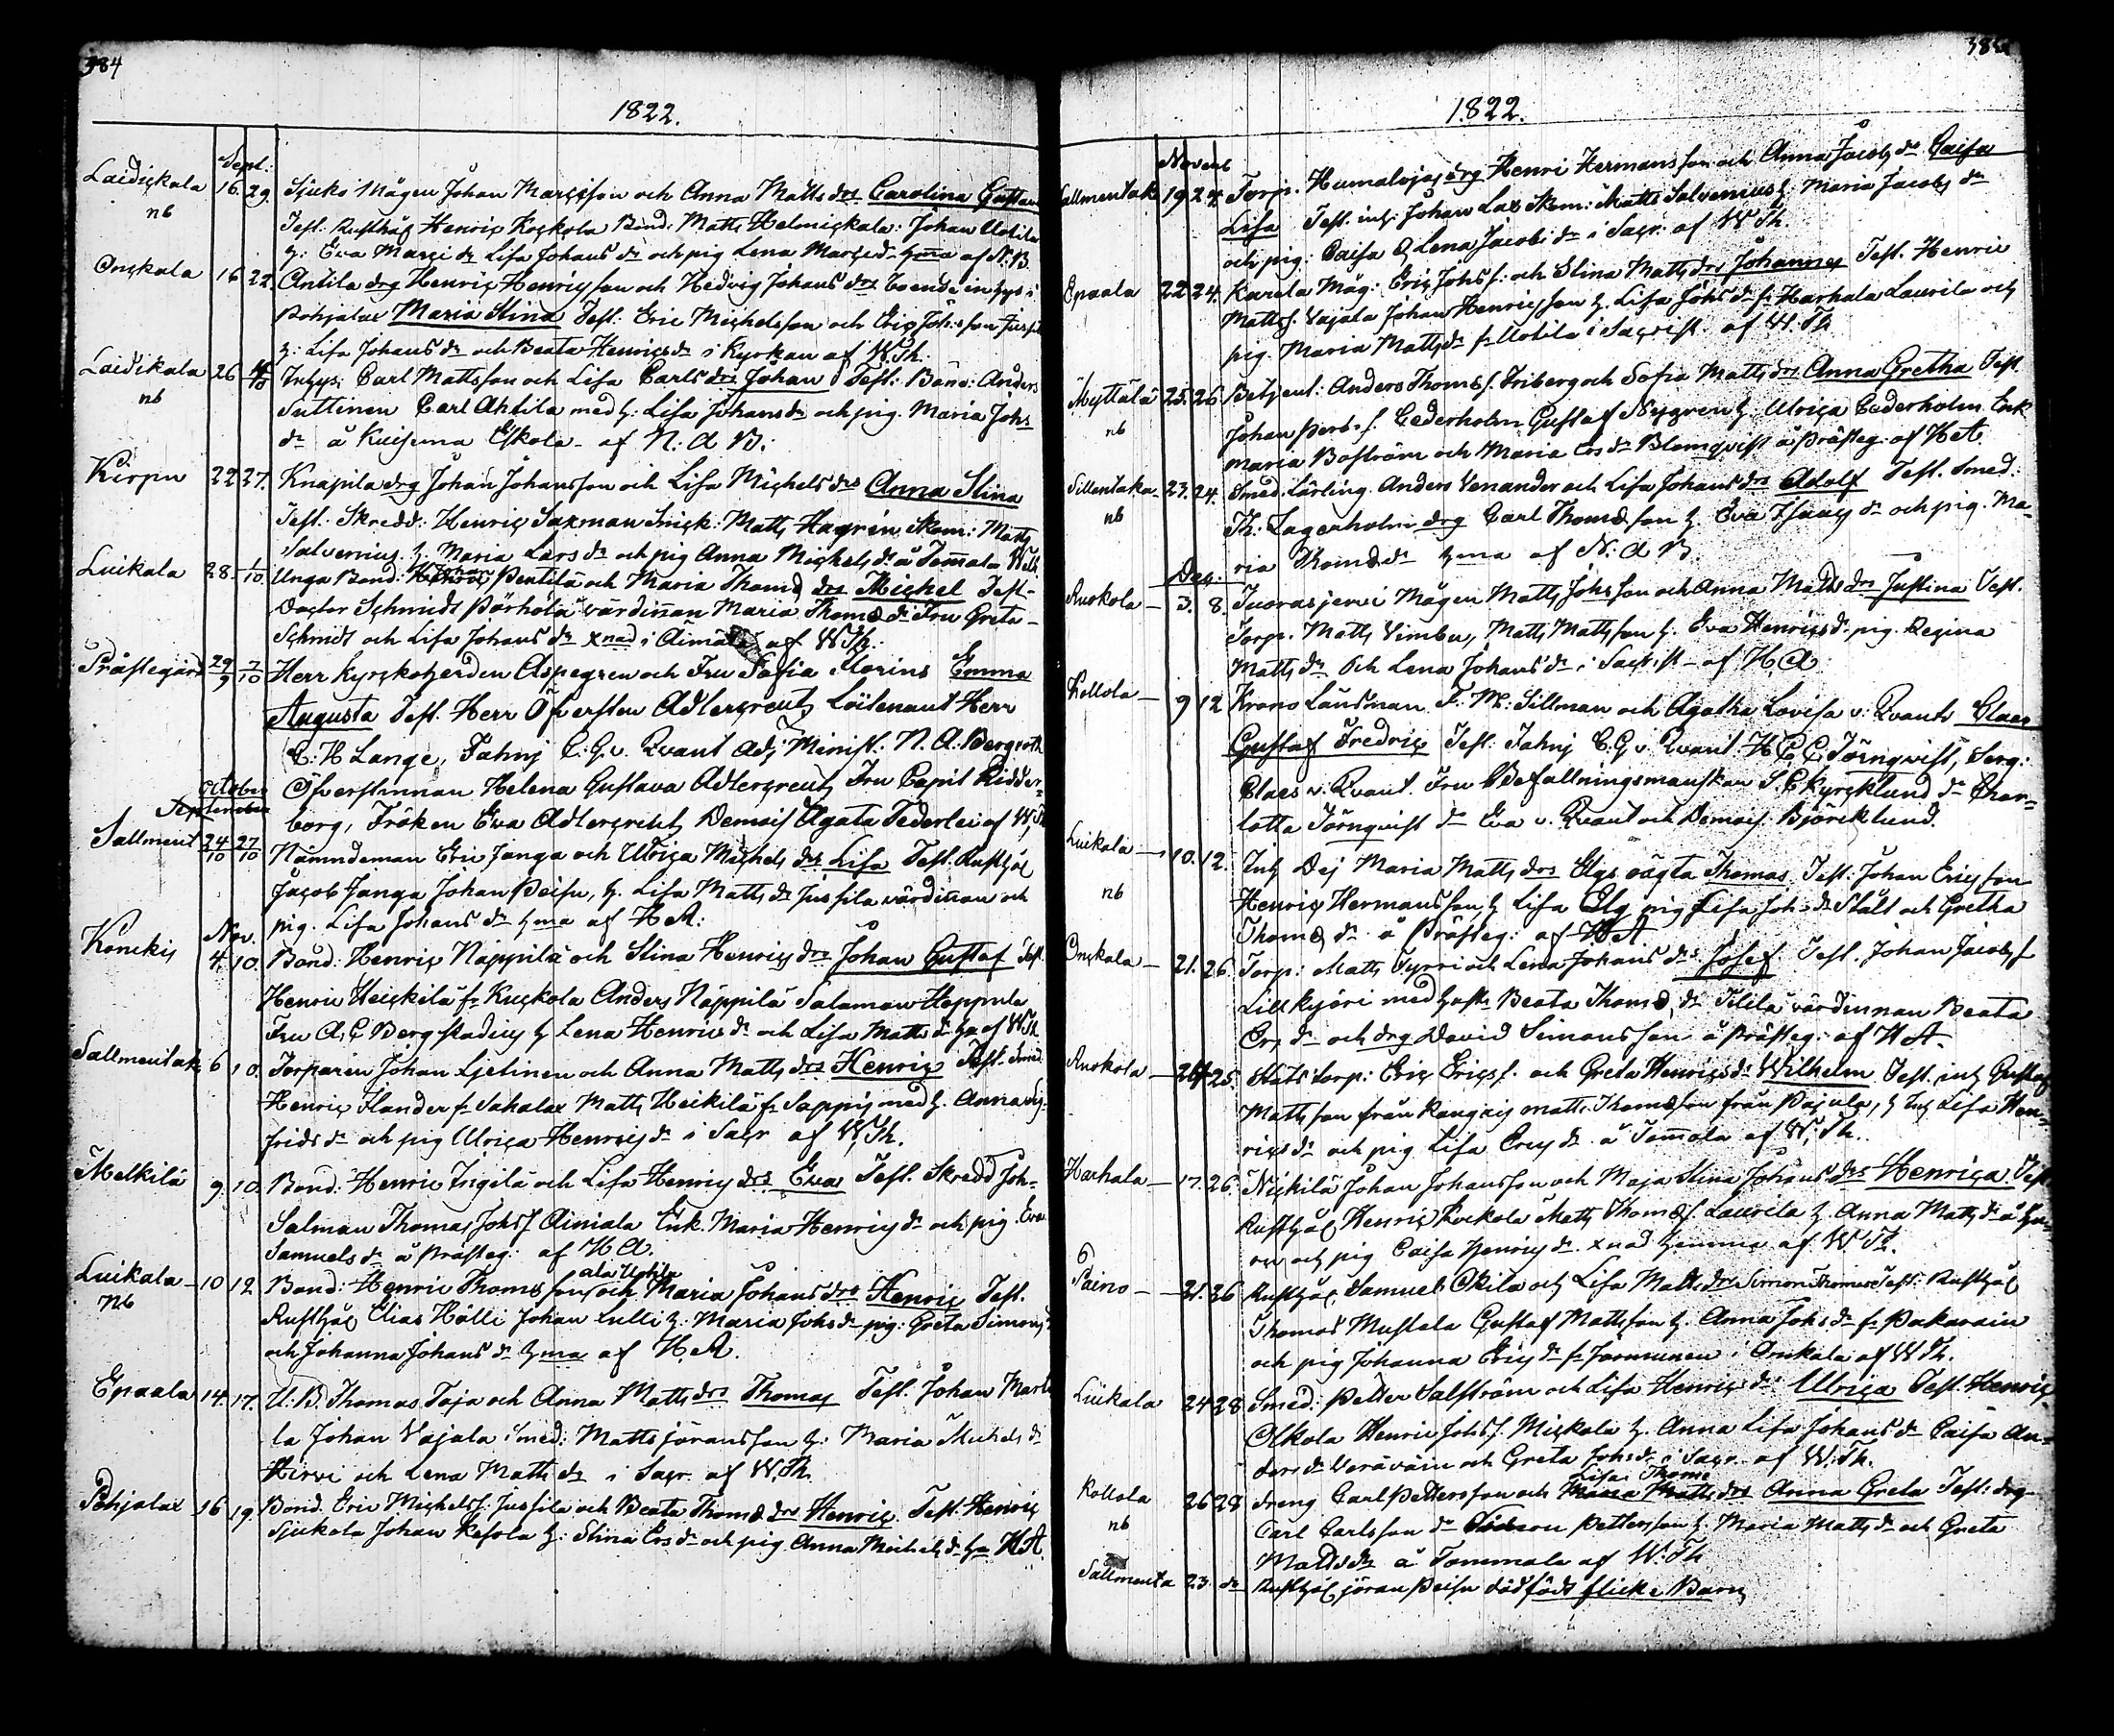 384
1822.
Sept:
Laidickala 16. 29. Sjuko Mågen Johan Marcisson och Anna Matts drs Carolina Gustava
nb Test. Rusthål Henric Kockola Bond. Matts Helmickala: Johan Uotila
h: Eva Marci dr Lisa Johans dr och pig Lena Marcid hma af N.B.
Onckala 16 22. Antila drg Henric Henricsson och Hedvig Johans drs boende inhys i
Pohjalax Maria Stina Test: Eric Michelsson och Eric Johsson Jussila
h: Lisa Johans dr och Beata Henrics dr i Kyrkan af W.Th:
Laidikala 26 4/10 Inhys: Carl Mattsson och Lisa Carls drs Johan Test: Bond: Anders
nb Suttinen Carl Ahtila med h: Lisa Johans dr och pig. Maria Johs
dr å Kuisema Eskola af N: A B:
Kirpu 22 27. Knapila drg Johan Johansson och Lisa Michels drs Anna Stina
Test: Skredd: Henric Saxman Snick: Matts Hagrén Skom: Matts
Salvenius h. Maria Lars dr och pig Anna Michels dr å Tommola W.Th.
Luikala 28. 1/10. Unga Bond: Johan Penttilä och Maria Thomæ drs Michel Test-
Doctor Schmidt Pörhölä värdinnan Maria Thomæ dr Fru Greta
Schmidt och Lisa Johans dr xnad i af W.Th:
Prästegård 29/9 7/10 Herr Kyrckoherden Aspegren och Fru Sofia Florins Emma
Augusta Test. Herr Öfversten Adlercreutz Löitenant Herr
C: H Lange, Fahnj C. G. v. Qvant Adj Minist. N. A. Bergroth
October Öfverstinnan Helena Gustava Adlercreutz Fru Capit Ridder-
September borg, Fröken Eva Adlercreutz Demois Agata Federlei af W.Th
Sallment 24/10 27/10 Nämndeman Eric Janga och Ulrica Michels drs Lisa Test. Rusthål
Jacob Janga Johan Peisu, h. Lisa Matts dr Jussila värdinan och
pig. Lisa Johans dr hma af H A:
Nov.
Konckis 4. 10. Bond: Henric Näppilä och Stina Henrics drs Johan Gustaf Test.
Henric Heickilä fr Kuckola Anders Näppilä Salamon Heppula
Fru A. C Bergstadius h Lena Henric dr och Lisa Matts dr ha af W.Th
Sallmentak 6 10. Torparen Johan Ljetinen och Anna Matts drs Henric Test. Smed
Henric Flander fr Sahalax Matts Heikilä fr Sappis med h. Anna Sig-
frids dr och pig Ulrica Henrics dr i Sacr. af W.Th.
Melkilä 9. 10. Bond: Henric Ingilä och Lisa Henrics drs Eva Test. Skredd Joh-
Salman Thomas Johs f Ainiala Enk. Maria Henrics dr och pig. Eva
Samuels dr å Prästeg: af H A.
Luikala 10 12 Bond: Henric Thomæ son och ala Uotila Maria Johans drs Henric Test.
Nb Rusthål Elias Hälli Johan Lulli h. Maria Johs dr pig: Greta Simons
och Johanna Johans dr hma af H.A.
Epaala 14. 17. U: B. Thomas Taja och Anna Matts drs Thomas Test. Johan Mart-
la Johan Vajala Smed: Matts Jöransson h: Maria Michels dr
Hirvi och Lena Matts dr i Sacr. af W.Th.
Pohjalax 16 19. Bond. Eric Michels f. Jussila och Beata Thomæ drs Henric. Test. Henric
Sjukola Johan Kesola h: Stina Ers dr och pig Anna Michels dr ha HA.
385
1822.
Novemb
Sallmentak 19 24. Torp. Humaloja drg Henric Hermansson och Anna Jacobs drs Caisa
Lisa Test. inh: Johan Lax Skom: Matts Salvenius h. Maria Jacobs dr
och pig: Caisa & Lena Jacobs dr i Sacr: af W Th.
Epaala 22 24. Karela Måg: Eric Johs f: och Stina Matts drs Johannes Test. Henric
Matts f. Vajala Johan Henricsson h. Lisa Johs dr fr Harhala Laurila och
pig. Maria Matts dr fr Uotila i Sacrist. af W. Th
Myttälä 25. 26 Betjent: Anders Thomæ f. Friberg och Sofia Matts drs Anna Gretha Test.
nb Johan Pers. f. Cederholm Gustaf Nygren h. Ulrica Cederholm Enk
maria Boström och Maria Ers dr Blomqvist å Prästeg. af H A
Sillentaka 23. 24. Smed. Lärling. Anders Venander och Lisa Johans drs Adolf Test. Smed:
nb Th: Lagerholm drg Carl Thomæ son h. Eva Isaacs dr och pig. Ma-
ria Thomæ dr hma af N: A B.
Dec:
Ruokola 3. 8. Mågen Matts Johsson och Anna Matts drs Justina Test.
Torp. Matts Vimba, Matts Mattsson h. Eva Henrics dr pig. Regina
Matts dr och Lena Johans dr i Sacrist. af H A
Kollola 9 12 Krono Länsman F: M: Sillman och Agatha Lovisa v: Qvants Claes
Gustaf Fredric Test: Fahnj C. G v. Qvant. H C C Törnqvist, Serg:
Claes v. Qvant. Fru Befallningsmanskan S. C Kyrcklund dr Char-
lotta Törnqvist dr Eva v. Qvant och Demois. Björcklund.
Luikala 10. 12. Inh Dej Maria Matts drs Elgs oägta Thomas Test: Johan Ericsson
nb Henric Hermansson, h Lisa Elg pig Lisa Joh. dr Stålt och Gretha
Thomæ dr å Prästeg: af H A
Onckala 21. 26 Torp: Matts Tyrri och Lena Johans drs Josef. Test. Johan Jacobs f
Lillkyöri med hust. Beata Thomæ dr Tilila värdinnan Beata
Ers dr och drg David Simonsson å Prästeg: af H A.
Ruokola 24 25. Stats torp: Eric Erics f. och Greta Henrics dr Wilhelm Test. inh Gustaf
Mattsson från Rangais matts Thomæson från Pajula, h Inh Lisa Hen-
rics dr och pig Lisa Erics dr å Tommola af W. Th.
Harhala 17. 26. Nickilä Johan Johansson och Maja Stina Johans drs Henrica Test
Rusthål Henric Kockola Matts Thomæ f. Laurila h. Anna Matts dr å
och pig Caisa Henrics dr xnad hemma af W Th.
Paino 21. 26 Rusthål Samuel Okila och Lisa Matts drs Simon Thomas Test: Rusthål
Thomas Mustala Gustaf Mattsson h. Anna Johs dr fr Pakarain
och pig Johanna Erics dr fr Jormunen i Onkala af W Th.
Luikala 24 28 Smed: Petter Salström och Lisa Henrics dr Ulrica Test. Henric
Olkola Henric Johs f. Mickola h. Anna Lisa Johans dr Caisa An-
ders dr och Greta Johs dr i Sacr. af W. Th.
Lisa Thomæ
Kollola 26 28 dreng Carl Pettersson och Maria Matts drs Anna Greta Test: drg
nb Carl Carlsson dr Pettersson h. Maria Matts dr och Greta
Matts dr å Tommola af W. Th
Sallmenta 23. dr Rusthål Jöran Peisu dödfödt flicke Barn